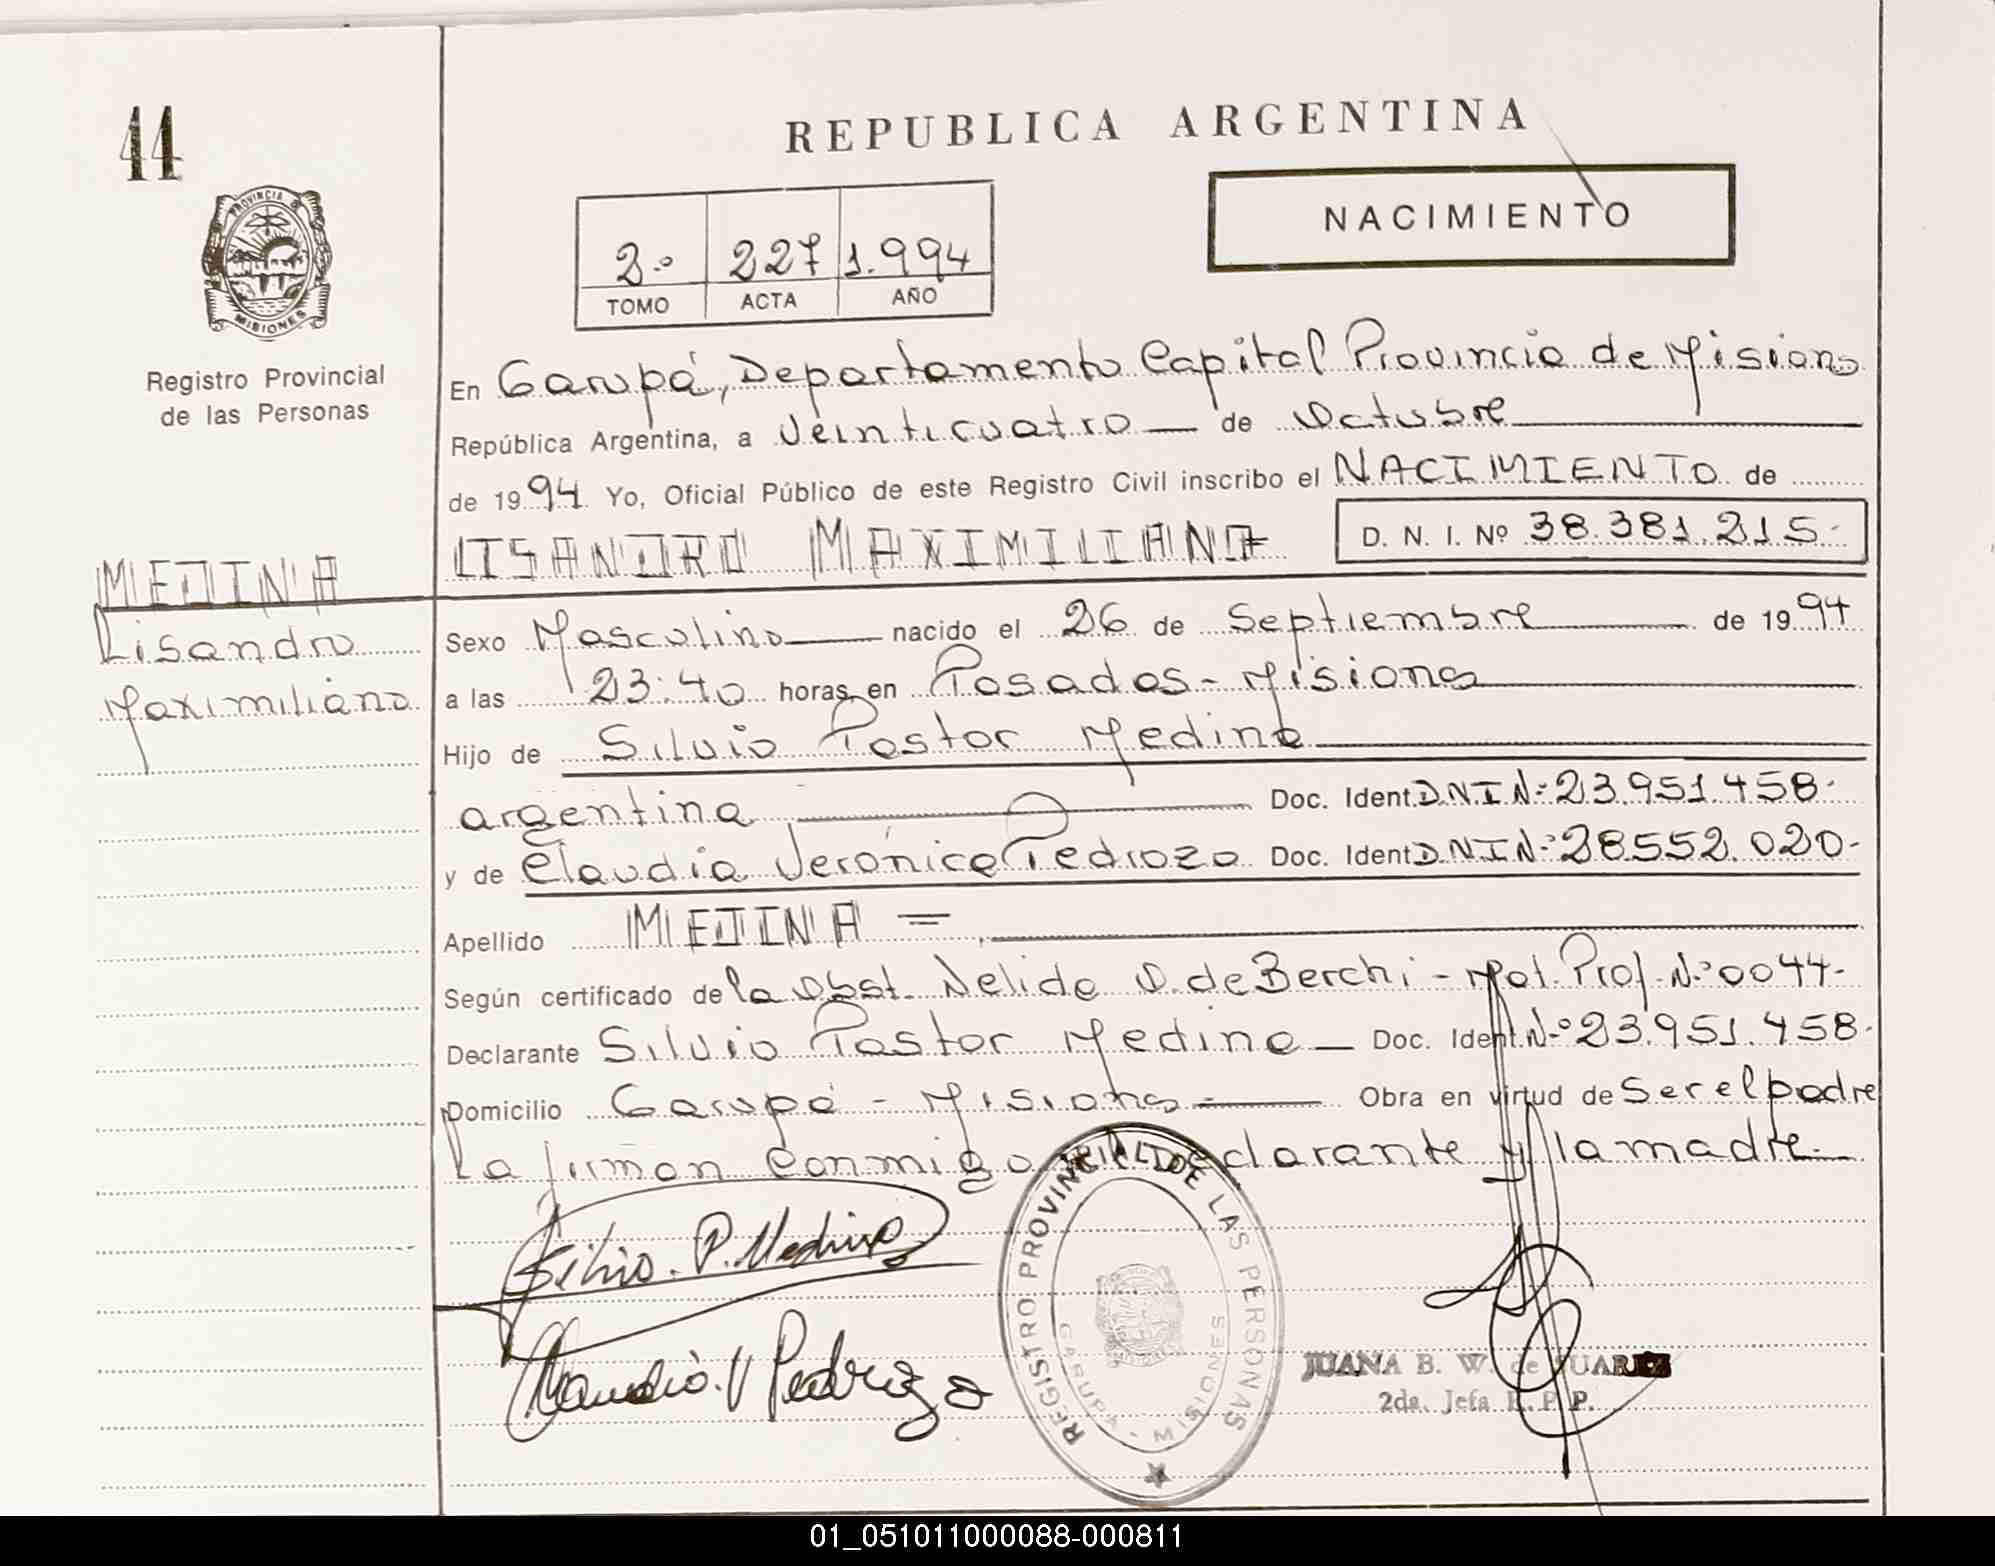 44
REPUBLICA ARGENTINA
PROVINCIA DE
MISIONES
NACIMIENTO
2º 227 1.994
TOMO ACTA AÑO
Registro Provincial
de las Personas
En Garupá, Departamento Capital Provincia de Misiones
República Argentina, a Veinticuatro — de Octubre
de 1994 Yo, Oficial Público de este Registro Civil inscribo el NACIMIENTO de
LISANDRO MAXIMILIANO= D. N. I. Nº 38.381.215-
MEDINA
Lisandro
Maximiliano
Sexo Masculino— nacido el 26 de Septiembre de 1994
a las 23:40 horas en Posadas - Misiones
Hijo de Silvio Pastor Medina
argentina Doc. Ident. D.N.I.Nº 23.951.458-
y de Claudia Verónica Pedrozo Doc. Ident. D.N.I.Nº 28.552.020-
Apellido MEDINA =
Según certificado de la Obst. Nelida O. de Berchi - Mat. Prof. Nº 0044-
Declarante Silvio Pastor Medina — Doc. Ident. Nº 23.951.458-
Domicilio Garupá - Misiones — Obra en virtud de Ser el padre
La firman conmigo el declarante y la madre.
Silvio. P. Medina
Claudia. V Pedrozo
REGISTRO PROVINCIAL DE LAS PERSONAS
GARUPA - MISIONES
JUANA B. W. de SUAREZ
2da. Jefa R. P. P.
01_051011000088-000811